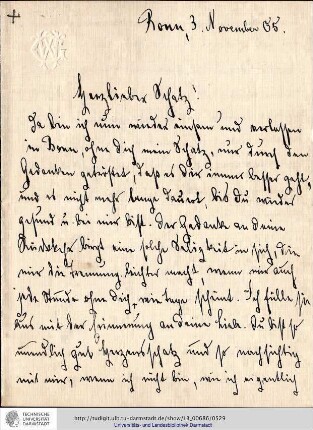 Bonn, 3. November 05.
Herzlieber Schatz!
Da bin ich nun wieder einsam und verlassen
in Bonn, ohne dich mein Schatz, nur durch den
Gedanken getröstet, daß es dir immer besser geht,
und es nicht mehr lange dauert, bis du wieder
gesund u. bei mir bist. Der Gedanke an deine
Rückkehr birgt eine solche Seligkeit in sich, die
mir die Trennung leichter macht, wenn mir auch
jede Stunde ohne dich, wie Tage scheint. Ich fülle sie
aus mit der Erinnerung an deine Liebe. Du bist so
unendlich gut Herzensschatz und so nachsichtig
mit mir, wenn ich nicht bin, wie ich eigentlich
TECHNISCHE
UNIVERSITÄT
DARMSTADT
http://tudigit.ulb.tu-darmstadt.de/show/LR_00686/0529
Universitäts- und Landesbibliothek Darmstadt